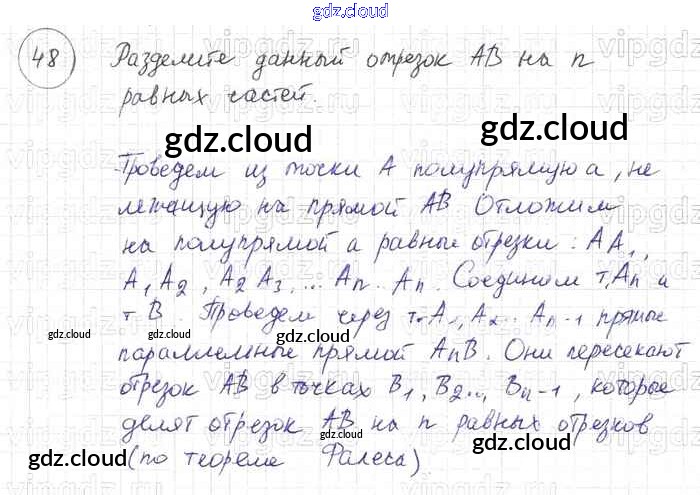 gdz.cloud
48 Разделите данный отрезок AB на n
равных частей.
gdz.cloud gdz.cloud
Проведем из точки A полупрямую a, не
лежащую на прямой AB Отложим
на полупрямой a равные отрезки: AA1,
A1A2, A2A3, ... An.. An. Соедином т. An и
т B. Проведем через т. A1, A2.. An-1 прямые
gdz.cloud gdz.cloud gdz.cloud gdz.cloud
параллельные прямой AnB. Они пересекают
отрезок AB в точках B1, B2.., Bn-1, которые
делят отрезок AB на n равных отрезков
gdz.cloud (по теореме Фалеса) gdz.cloud
gdz.cloud